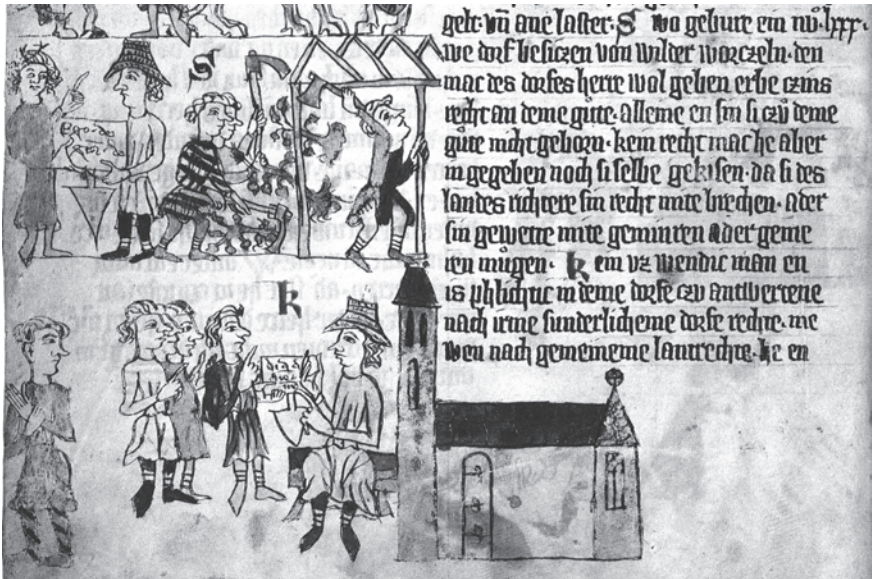 S
k
gelt· vn̄ ane laster· S wo gebure ein nuͦ· lxxx·
we dorf besiczen von wilder worczeln· den
mac des dorfes herre wol geben erbe czins
recht an deme guͦte· alleine en sin si czuͦ deme
guͦte nicht geborn· kein recht mac he aber
in gegeben noch si selbe gekisen· da si des
landes richtere sin recht mite brechen· ader
sin gewette mite geminren ader geme
ren muͦgen· k ein vz wendic man en
is phlichtic in deme dorfe czu antwertene
nach irme sunderlicheme dorfe rechte· me
wen nach gemeineme lantrechte· he en